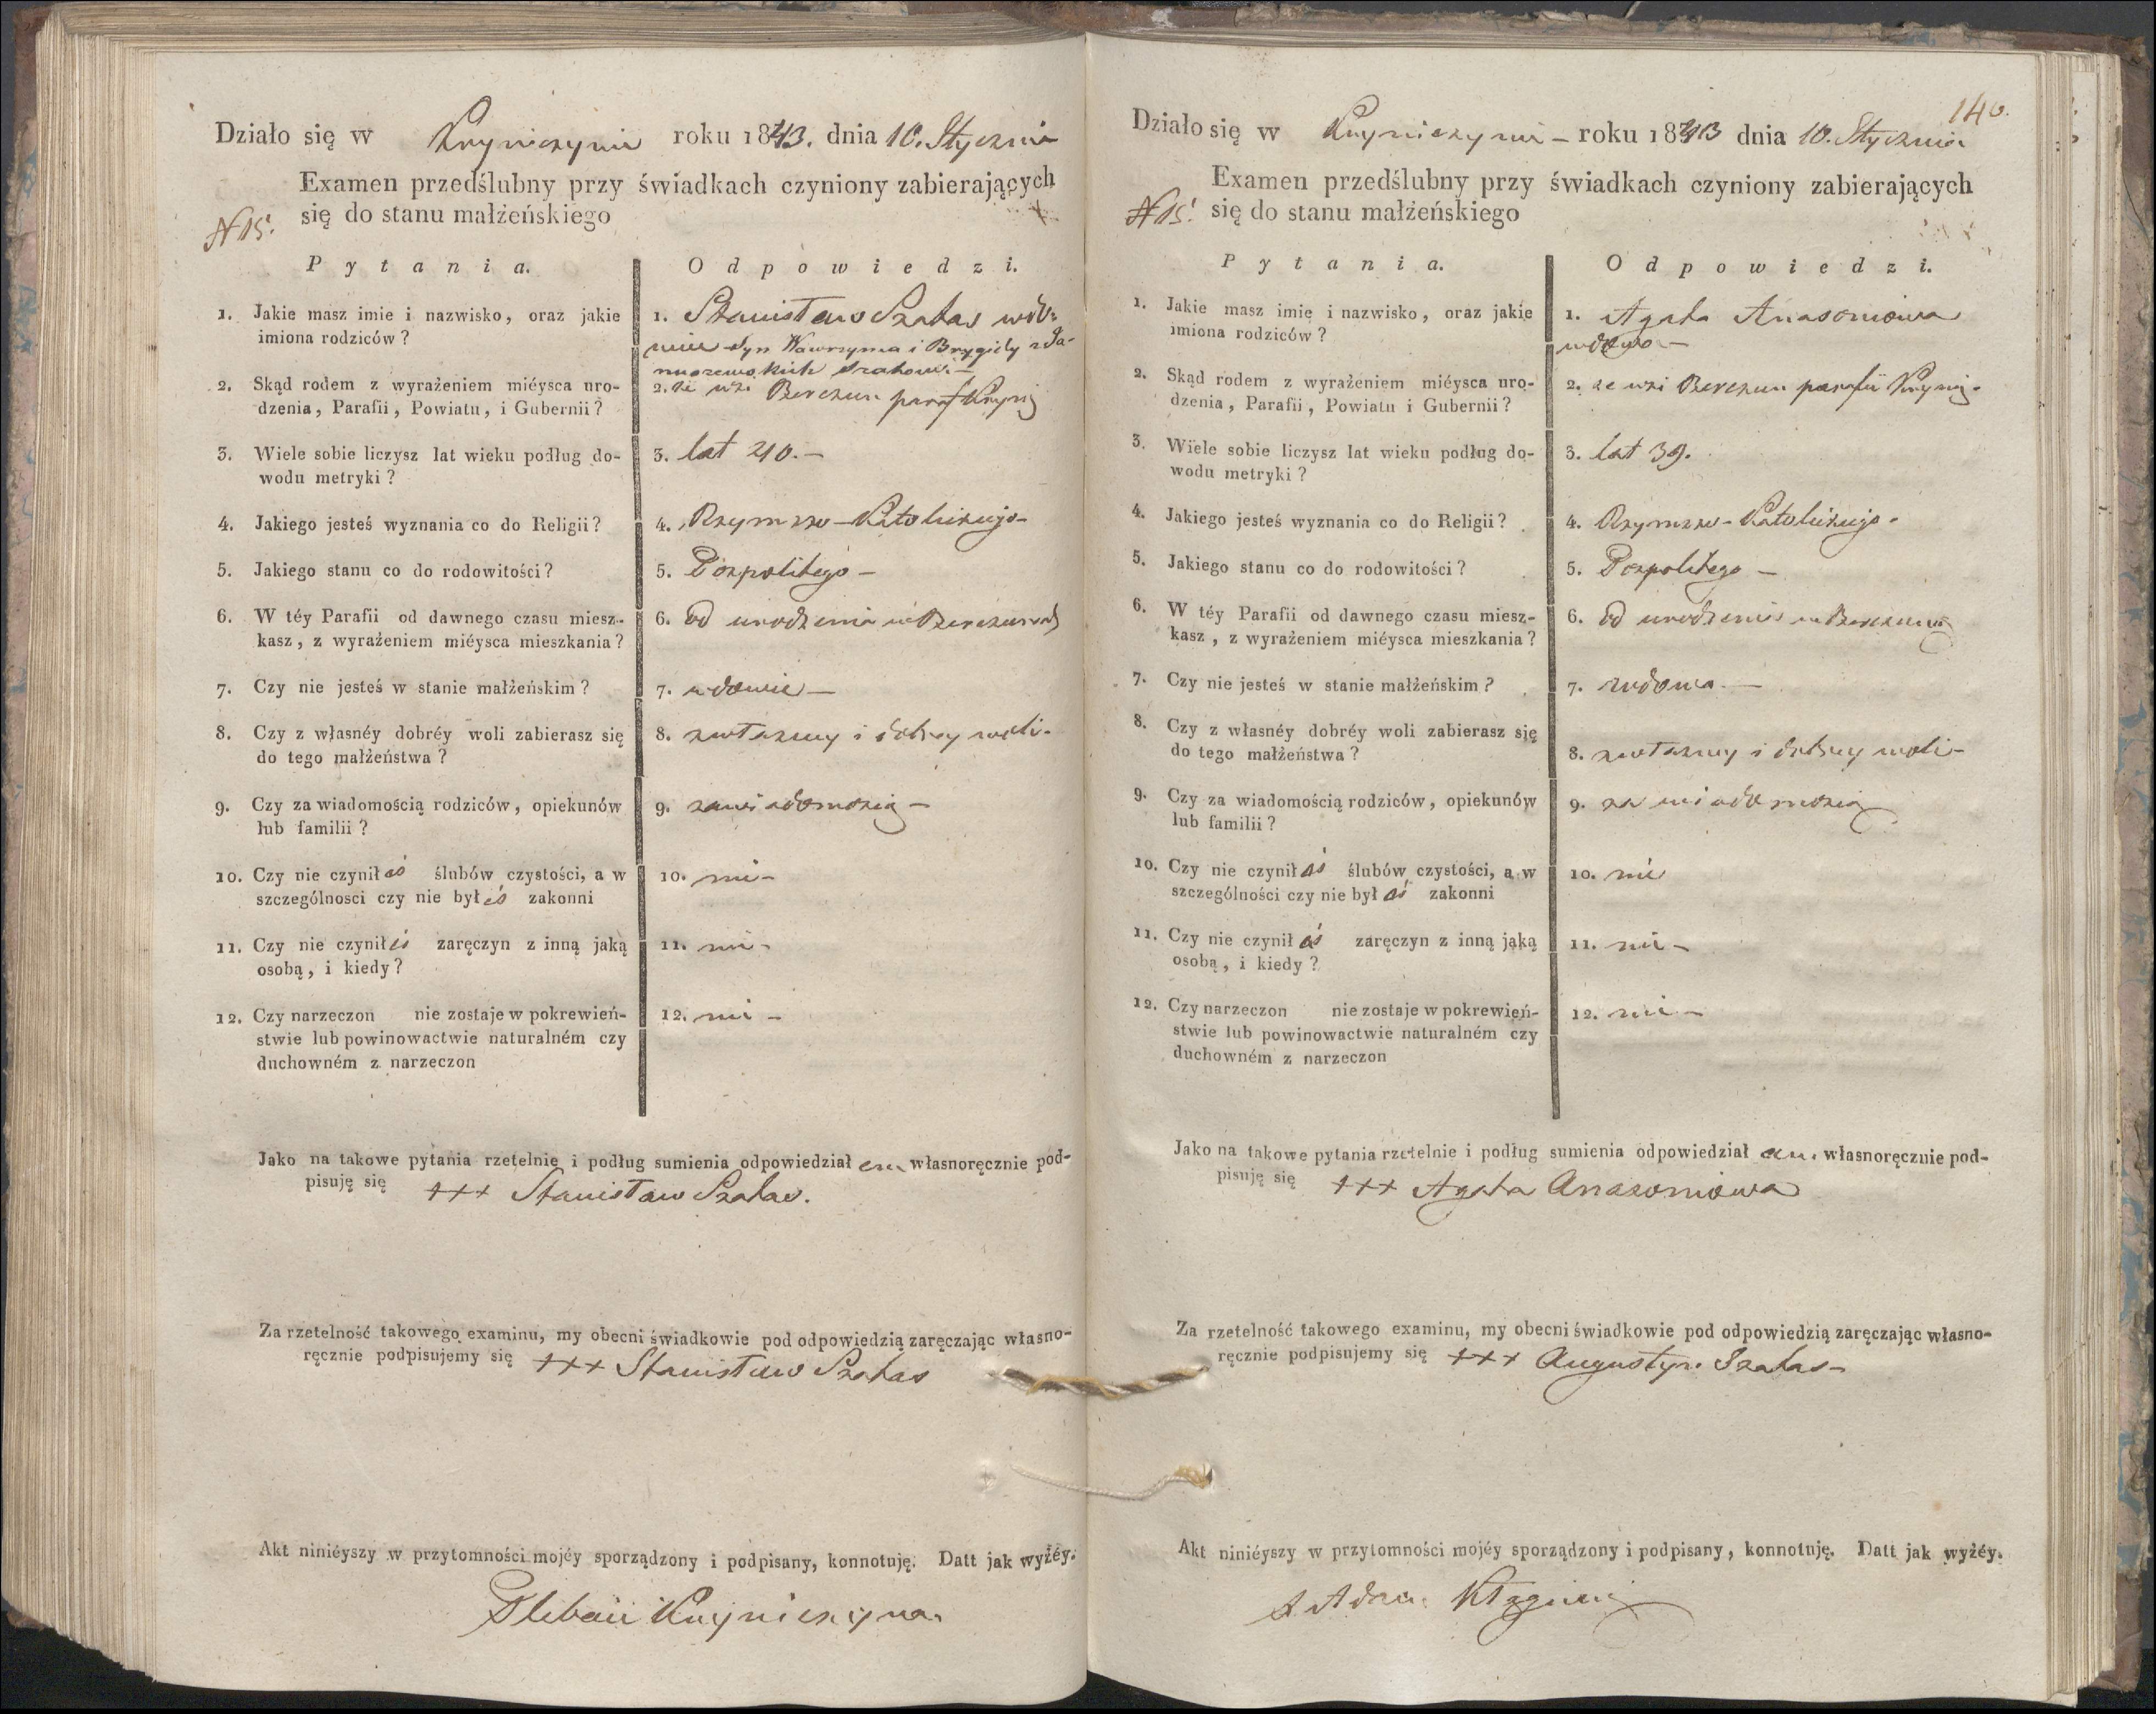 Działo się w Knyniczynie roku 1843. dnia 10. Stycznia
Examen przedślubny przy świadkach czyniony zabierających
się do stanu małżeńskiego
N 15.
Pytania.
Odpowiedzi.
1. Jakie masz imie i nazwisko, oraz jakie
imiona rodziców?
1. Stanisław Szałas wdo-
wiec syn Wawrzyńca i Brygidy
2. Skąd rodem z wyrażeniem miéysca uro-
dzenia, Parafii, Powiatu, i Gubernii?
2. ze wsi
3. Wiele sobie liczysz lat wieku podług do-
wodu metryki?
3. lat 40.–
4. Jakiego jesteś wyznania co do Religii?
4. Rzymsko-Katolickiego-
5. Jakiego stanu co do rodowitości?
5. Pospolitego –
6. W téy Parafii od dawnego czasu miesz-
kasz, z wyrażeniem miéysca mieszkania?
6. Od urodzenia w
7. Czy nie jesteś w stanie małżeńskim?
7. wdowiec –
8. Czy z własnéy dobréy woli zabierasz się
do tego małżeństwa?
8. z własney i dobrey woli-
9. Czy za wiadomością rodziców, opiekunów
lub familii?
9. za wiadomością –
10. Czy nie czyniłeś ślubów czystości, a w
szczególnosci czy nie byłeś zakonni
10. nie-
11. Czy nie czyniłeś zaręczyn z inną jaką
osobą, i kiedy?
11. nie-
12. Czy narzeczon nie zostaje w pokrewień-
stwie lub powinowactwie naturalném czy
duchowném z narzeczon
12. nie –
Jako na takowe pytania rzetelnie i podług sumienia odpowiedziałem własnoręcznie pod-
pisuję się +++ Stanisław Szałas.
Za rzetelność takowego examinu, my obecni świadkowie pod odpowiedzią zaręczając własno-
ręcznie podpisujemy się +++ Stanisław Szałas
Akt niniéyszy w przytomności mojéy sporządzony i podpisany, konnotuję. Datt jak wyżéy.
140.
Działo się w Knyniczynie – roku 1843 dnia 10. Stycznia
Examen przedślubny przy świadkach czyniony zabierających
się do stanu małżeńskiego
N 15.
Pytania.
Odpowiedzi.
1. Jakie masz imię i nazwisko, oraz jakie
imiona rodziców?
1. Agata
wdowa –
2. Skąd rodem z wyrażeniem miéysca uro-
dzenia, Parafii, Powiatu i Gubernii?
2. ze wsi parafii
3. Wiele sobie liczysz lat wieku podług do-
wodu metryki?
3. lat 39.
4. Jakiego jesteś wyznania co do Religii?
4. Rzymsko-Katolickiego-
5. Jakiego stanu co do rodowitości?
5. Pospolitego –
6. W téy Parafii od dawnego czasu miesz-
kasz, z wyrażeniem miéysca mieszkania?
6. Od urodzenia w
7. Czy nie jesteś w stanie małżeńskim?
7. wdowa –
8. Czy z własnéy dobréy woli zabierasz się
do tego małżeństwa?
8. z własney i dobrey woli-
9. Czy za wiadomością rodziców, opiekunów
lub familii?
9. za wiadomością
10. Czy nie czyniłaś ślubów czystości, a w
szczególności czy nie byłaś zakonni
10. nie
11. Czy nie czyniłaś zaręczyn z inną jaką
osobą, i kiedy?
11. nie –
12. Czy narzeczon nie zostaje w pokrewień-
stwie lub powinowactwie naturalném czy
duchowném z narzeczon
12. nie –
Jako na takowe pytania rzetelnie i podług sumienia odpowiedziałam własnoręcznie pod-
pisuję się +++ Agata
Za rzetelność takowego examinu, my obecni świadkowie pod odpowiedzią zaręczając własno-
ręcznie podpisujemy się +++ Augustyn Szałas-
Akt niniéyszy w przytomności mojéy sporządzony i podpisany, konnotuję. Datt jak wyżéy.